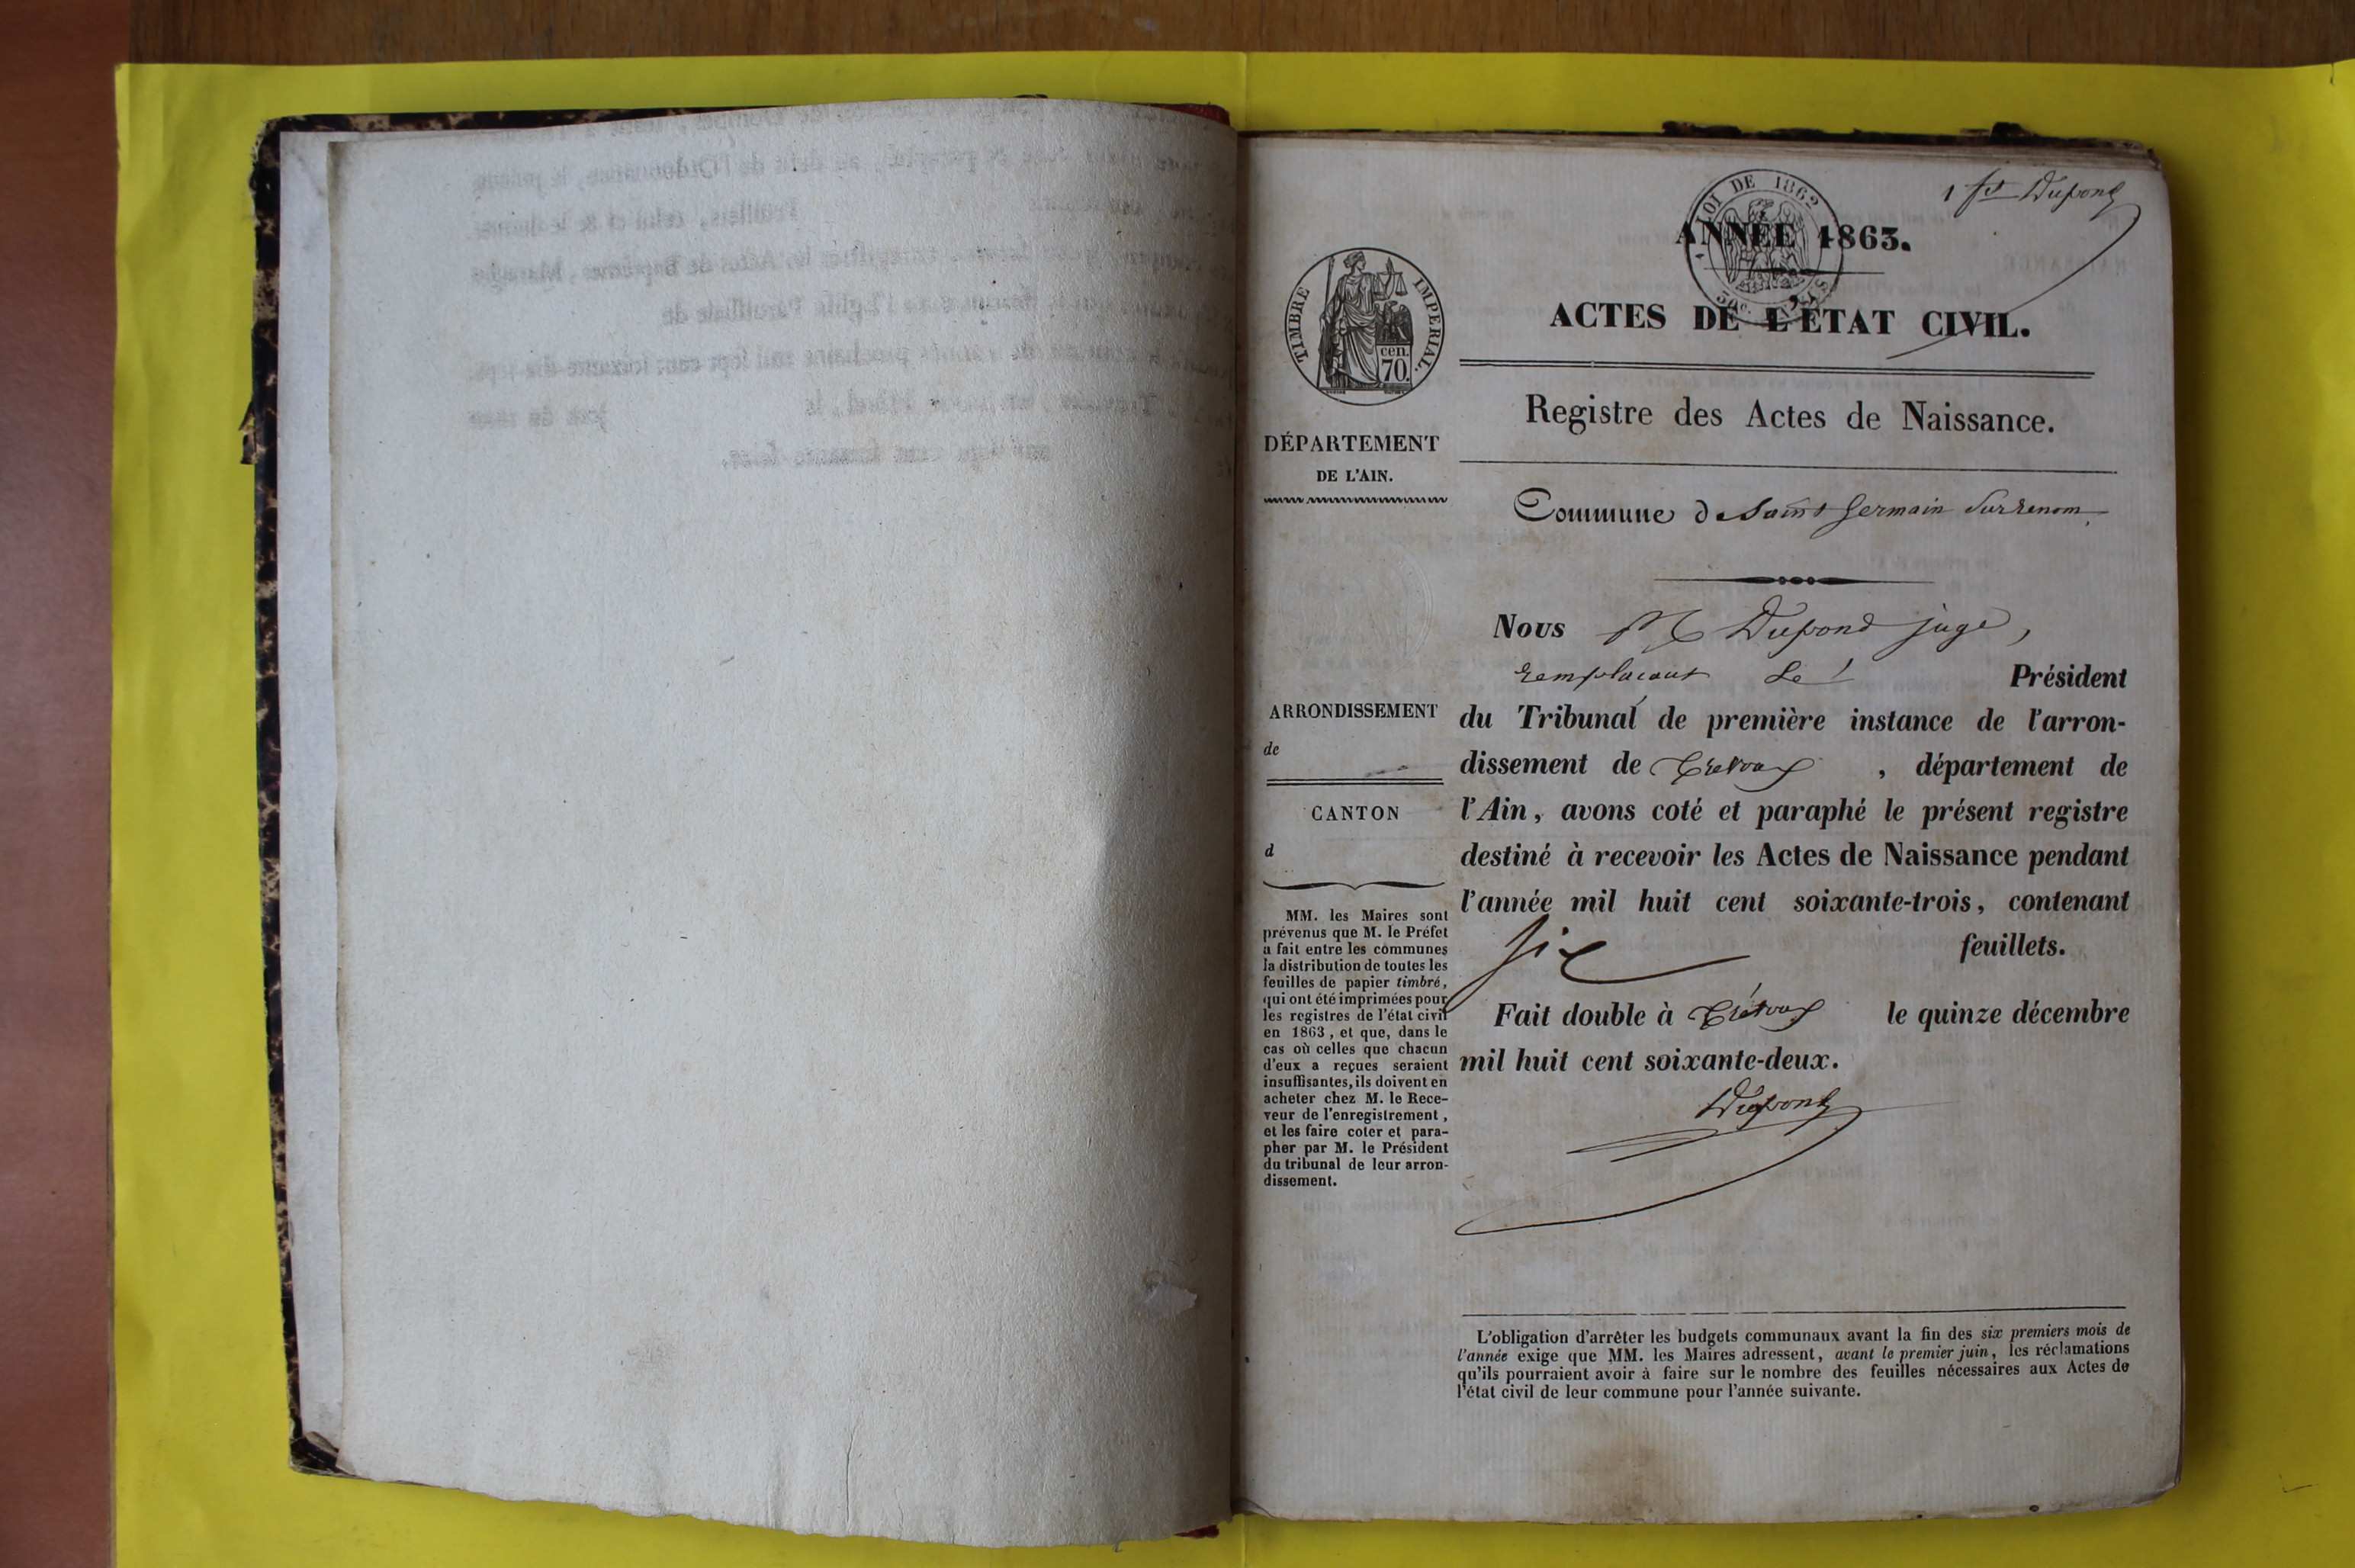 1 fet Dupond
LOI DE 1862
ANNÉE 1863.
TIMBRE IMPERIAL.
cen.
70.
ACTES DE L'ÉTAT CIVIL.
Registre des Actes de Naissance.
DÉPARTEMENT
DE L'AIN.
Commune de Saint Germain Sur Renom
Nous M Dupond juge,
remplacant Le Président
ARRONDISSEMENT
de
CANTON
d
du Tribunal de première instance de l'arron-
dissement de Trévoux, département de
l'Ain, avons coté et paraphé le présent registre
destiné à recevoir les Actes de Naissance pendant
l'année mil huit cent soixante-trois, contenant
six feuillets.
Fait double à Trévoux le quinze décembre
mil huit cent soixante-deux.
Dupond
MM. les Maires sont
prévenus que M. le Préfet
a fait entre les communes
la distribution de toutes les
feuilles de papier timbré,
qui ont été imprimées pour
les registres de l'état civil
en 1863, et que, dans le
cas où celles que chacun
d'eux a reçues seraient
insuffisantes, ils doivent en
acheter chez M. le Rece-
veur de l'enregistrement,
et les faire coter et para-
pher par M. le Président
du tribunal de leur arron-
dissement.
L'obligation d'arrêter les budgets communaux avant la fin des six premiers mois de
l'année exige que MM. les Maires adressent, avant le premier juin, les réclamations
qu'ils pourraient avoir à faire sur le nombre des feuilles nécessaires aux Actes de
l'état civil de leur commune pour l'année suivante.